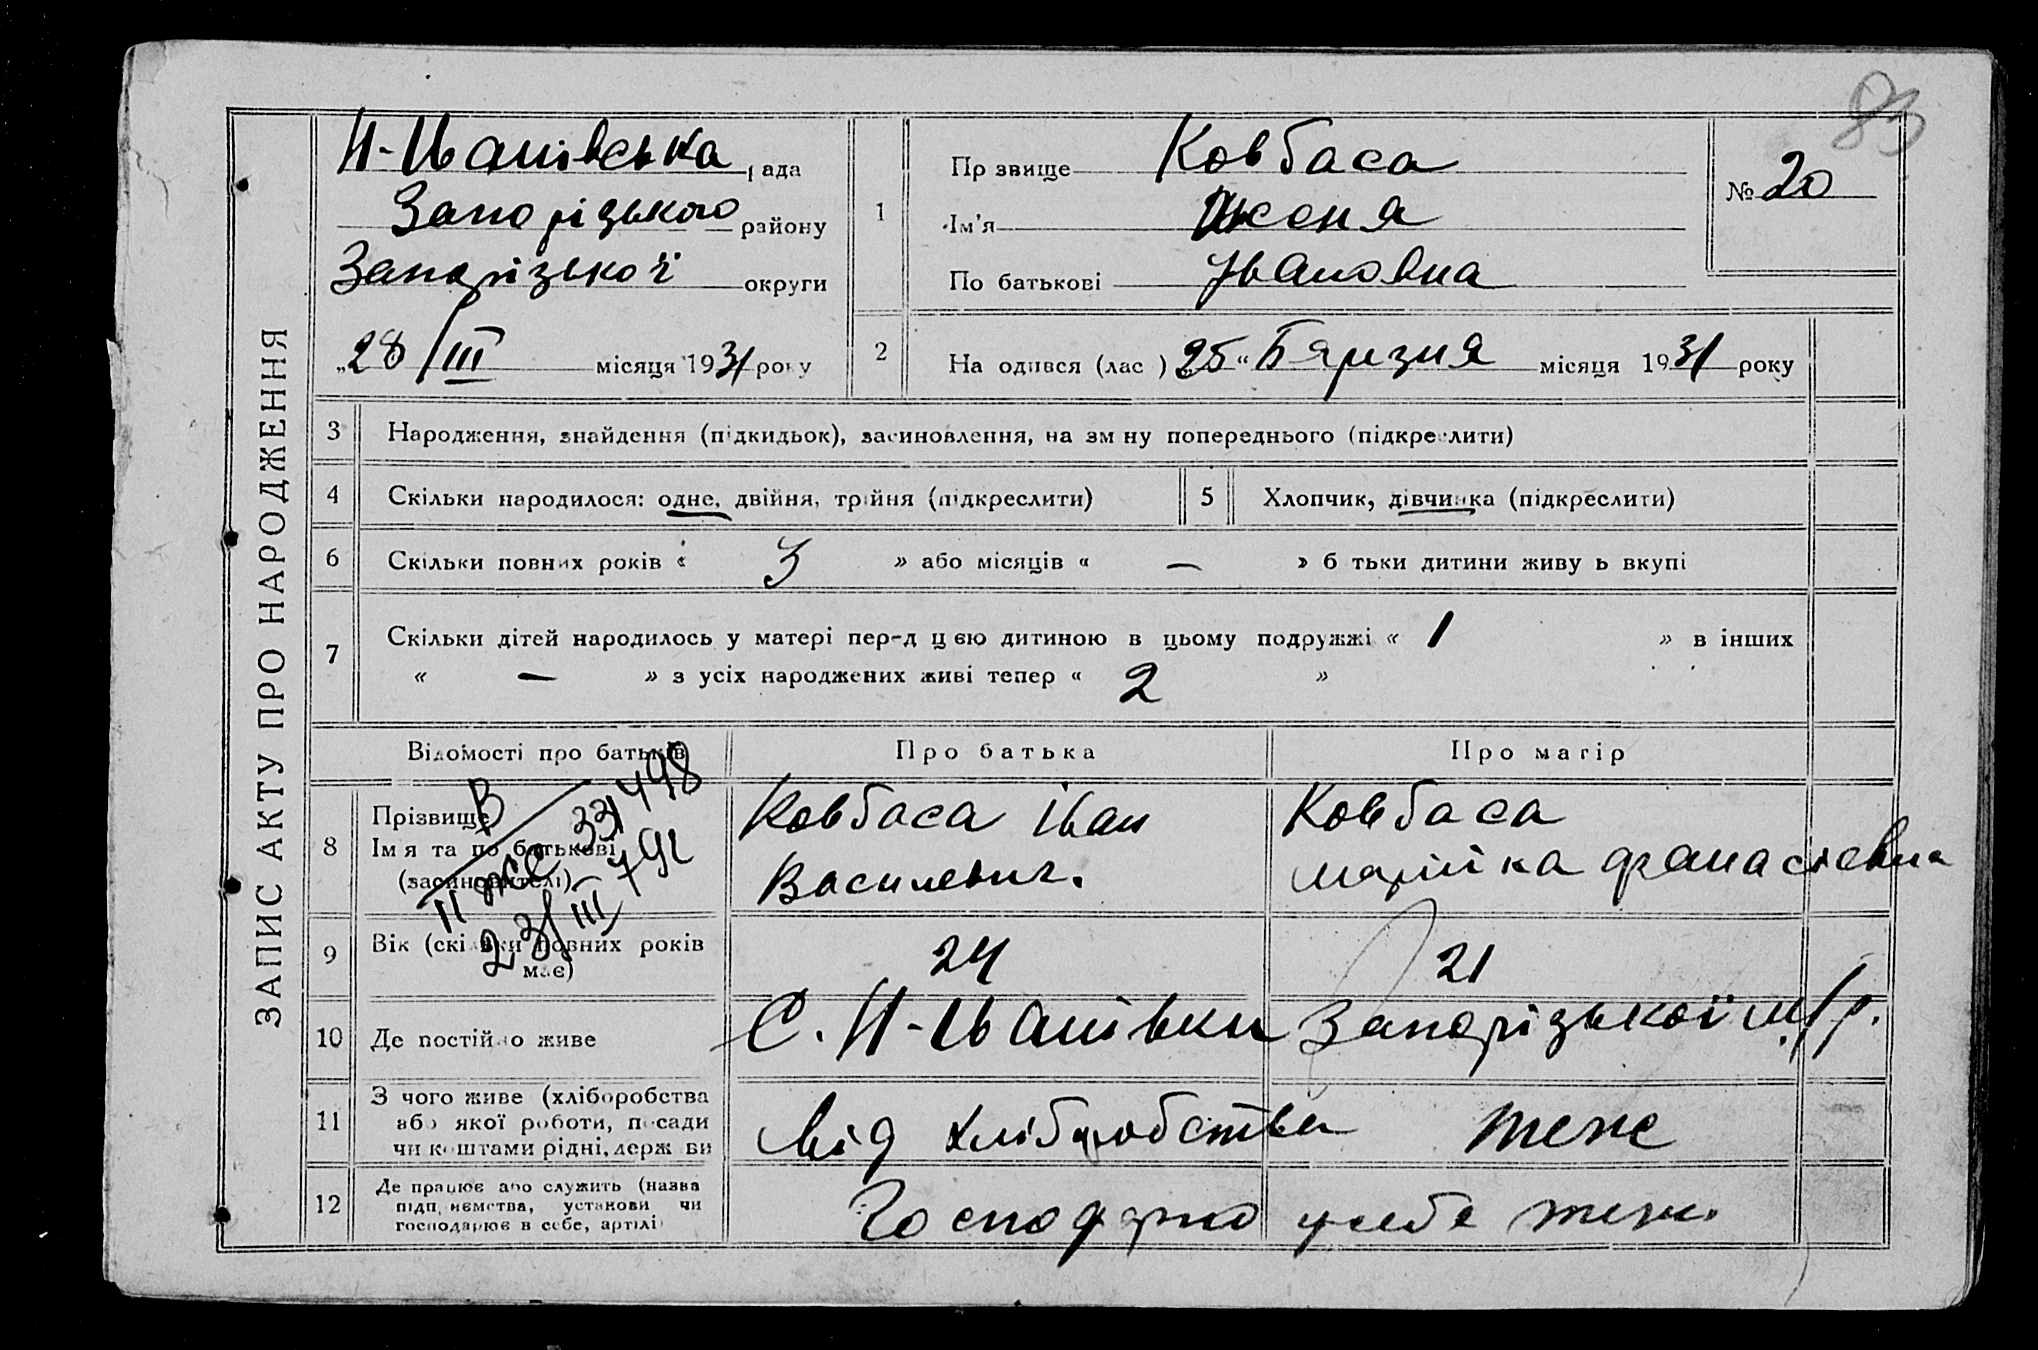 83
Н-Іванівська рада
Запорізького району
Запорізької округи
„28/III місяця 1931 року
1
Прзвище Ковбаса
Ім'я Женя
По батькові Івановна
№ 20
2
На одився (лас ) „25“ Бярезня місяця 1931 року
ЗАПИС АКТУ ПРО НАРОДЖЕННЯ
3 Народження, знайдення (підкидьок), засиновлення, на зм ну попереднього (підкреслити)
4 Скільки народилося: одне, двійня, трійня (підкреслити)
5 Хлопчик, дівчинка (підкреслити)
6 Скільки повних років « 3 » або місяців « — » б тьки дитини живу ь вкупі
7 Скільки дітей народилось у матері пер-д цією дитиною в цьому подружжі « 1 » в інших
« — » з усіх народжених живі тепер « 2 »
Відомості про батьків
Про батька
Про матір
8 Прізвище
Імя та по батькові
(засиновителі)
Ковбаса Іван
Василевич.
Ковбаса
Марійка Фанасіевна
В
II же 331498
23/III 79г
9 Вік (скільки повних років
має)
24
21
10 Де постійно живе
С. Н-Іванівки Запорізької м/р.
11 З чого живе (хліборобства
або якої роботи, посади
чи коштами рідні, держ ви
Від хліборобства
теже
12 Де працює або служить (назва
підп иємства, установи чи
господарює в себе, артілі)
Господарю у себе теже.